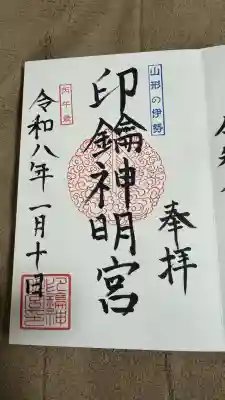 山形の伊勢
奉拝
印鑰神明宮
丙午歳
令和八年一月十日